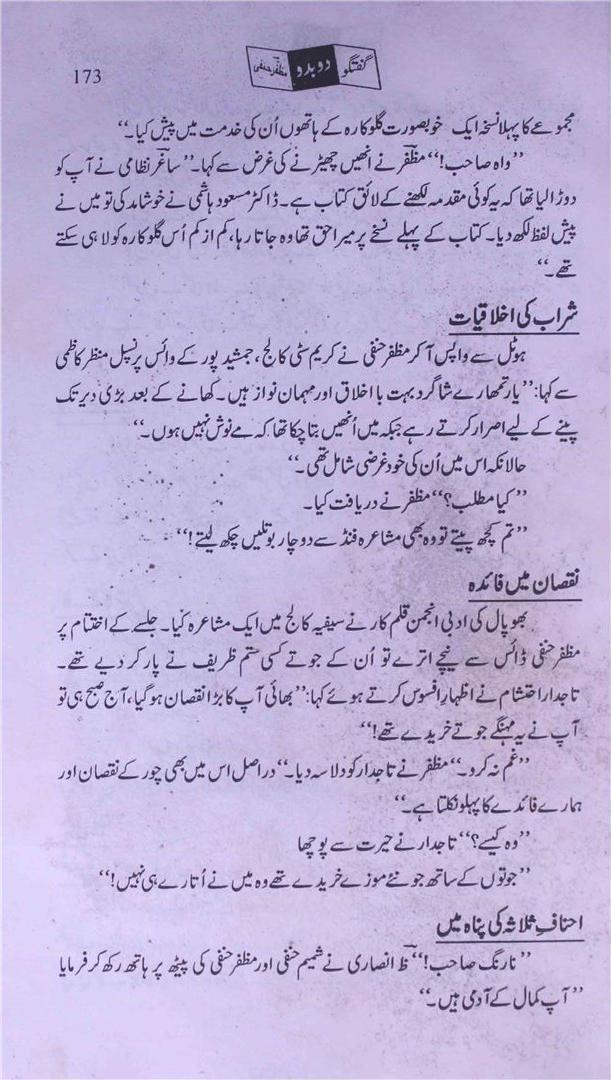 173
گفتگو دوبدو مظفر حنفی
مجموعے کا پہلا نسخہ ایک خوبصورت گلوکارہ کے ہاتھوں اُن کی خدمت میں پیش کیا۔“
”واہ صاحب!“ مظفرؔ نے انھیں چھیڑنے کی غرض سے کہا۔ ”ساغرؔ نظامی نے آپ کو
دوڑا لیا تھا کہ یہ کوئی مقدمہ لکھنے کے لائق کتاب ہے۔ ڈاکٹر مسعود ہاشمی نے خوشامد کی تو میں نے
پیش لفظ لکھ دیا۔ کتاب کے پہلے نسخے پر میرا حق تھا وہ جاتا رہا، کم از کم اُس گلوکارہ کو لا ہی سکتے
تھے۔“
شراب کی اخلاقیات
ہوٹل سے واپس آ کر مظفر حنفی نے کریم سٹی کالج، جمشید پور کے وائس پرنسپل منظر کاظمی
سے کہا: ”یار تمھارے شاگرد بہت با اخلاق اور مہمان نواز ہیں۔ کھانے کے بعد بڑی دیر تک
پینے کے لیے اصرار کرتے رہے جبکہ میں اُنھیں بتا چکا تھا کہ مے نوش نہیں ہوں۔“
حالانکہ اس میں اُن کی خود غرضی شامل تھی۔“
”کیا مطلب؟“ مظفر نے دریافت کیا۔
”تم کچھ پیتے تو وہ بھی مشاعرہ فنڈ سے دو چار بوتلیں چکھ لیتے!“
نقصان میں فائدہ
بھوپال کی ادبی انجمن قلم کار نے سیفیہ کالج میں ایک مشاعرہ کیا۔ جلسے کے اختتام پر
مظفر حنفی ڈائس سے نیچے اترے تو اُن کے جوتے کسی ستم ظریف نے پار کر دیے تھے۔
تاجدار احتشام نے اظہارِ افسوس کرتے ہوئے کہا: ”بھائی آپ کا بڑا نقصان ہو گیا، آج صبح ہی تو
آپ نے یہ مہنگے جوتے خریدے تھے!“
”غم نہ کرو۔“ مظفر نے تاجدار کو دلاسہ دیا۔ ”در اصل اس میں بھی چور کے نقصان اور
ہمارے فائدے کا پہلو نکلتا ہے۔“
”وہ کیسے؟“ تاجدار نے حیرت سے پوچھا
”جوتوں کے ساتھ جو نئے موزے خریدے تھے وہ میں نے اُتارے ہی نہیں!“
احنافِ ثلاثہ کی پناہ میں
”نارنگ صاحب!“ ظؔ انصاری نے شمیم حنفی اور مظفر حنفی کی پیٹھ پر ہاتھ رکھ کر فرمایا
”آپ کمال کے آدمی ہیں۔“